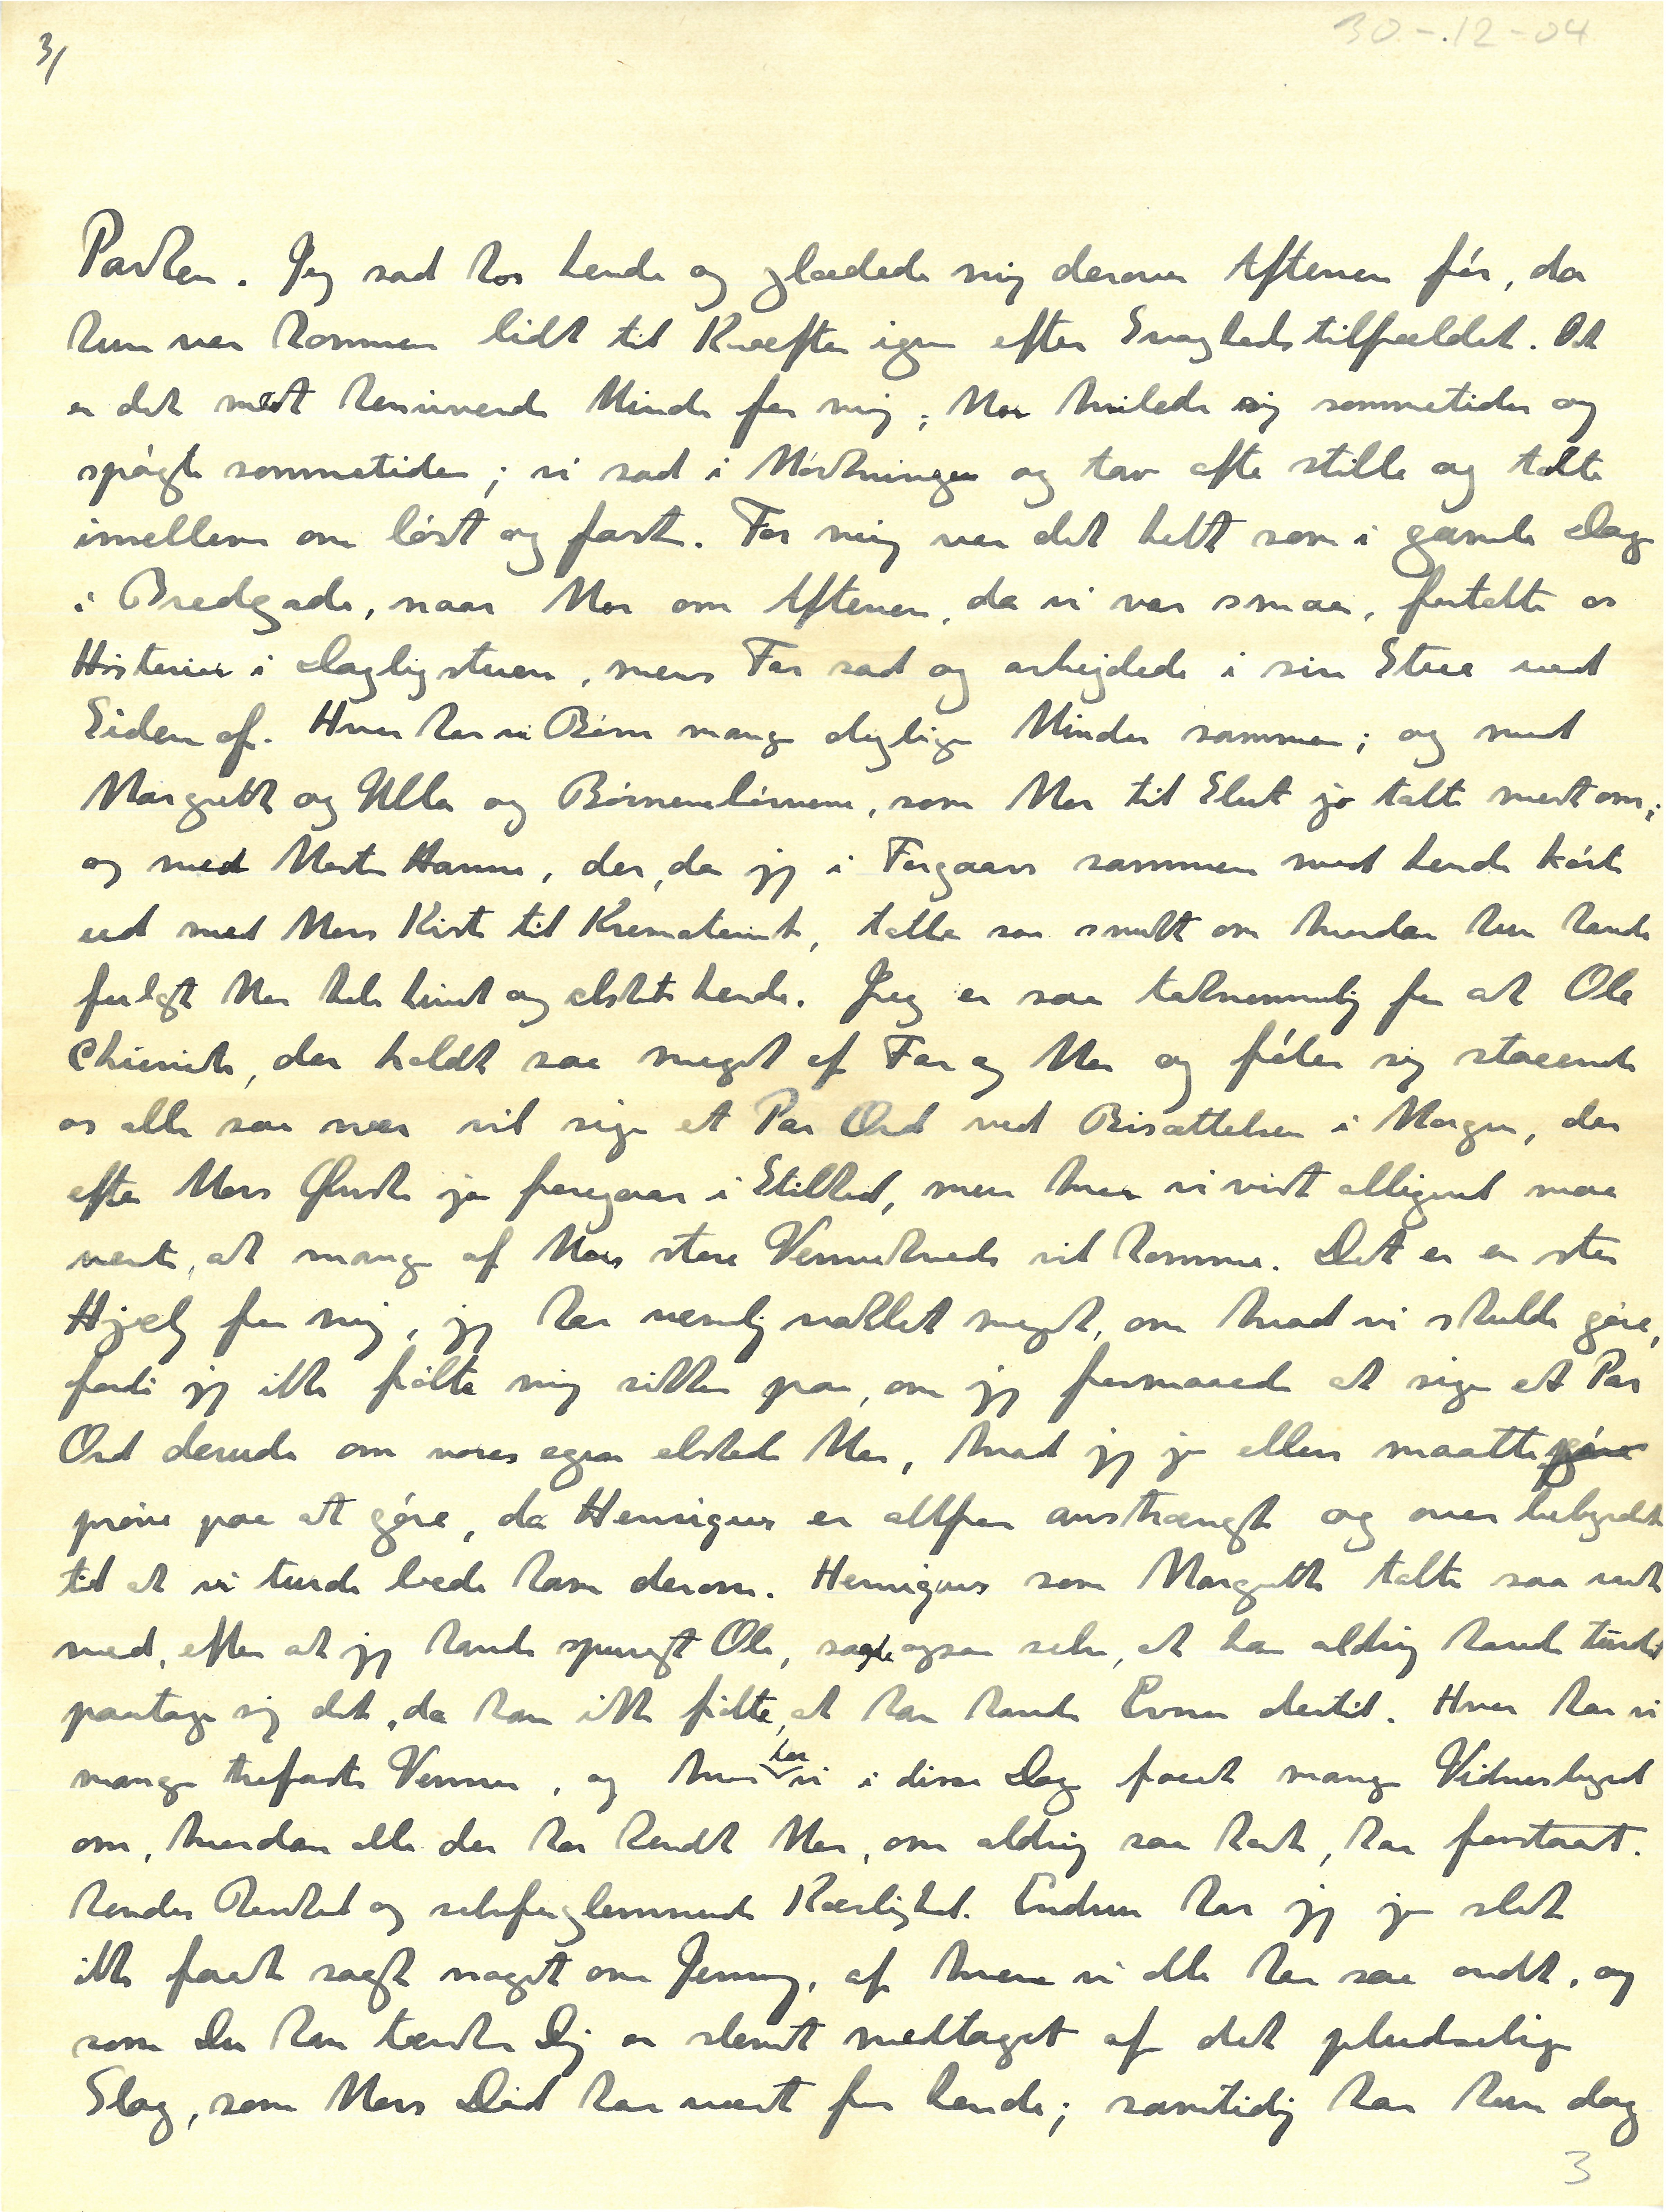 3/
30-12-04
Parken. Jeg sad hos hende og glædede mig derover Aftenen før, da
hun var kommen lidt til Kræfter igen efter Svaghedstilfældet. Det
er det mest henrivende Minde for mig; Mor hvilede sig sommetider og
spøgte sommetider; vi sad i Mørkningen og tav ofte stille og talte
imellem om løst og fast. For mig var det helt som i gamle Dage
i Bredgade, naar Mor om Aftenen, da vi var smaa, fortalte os
Historier i Dagligstuen, mens Far sad og arbejdede i sin Stue ved
Siden af. Hvor har vi Børn mange dejlige Minder sammen; og med
Margrethe og Ulla og Børnebørnene, som Mor til Slut jo talte mest om;
og med Moster Hanne, der, da jeg i Forgaars sammen med hende kørte
ud med Mors Kiste til Krematoriet, talte saa smukt om hvordan hun havde
fulgt Mor hele Livet og elsket hende. Jeg er saa taknemmelig for at Ole
Chievitz, der holdt saa meget af Far og Mor og føler sig staaende
os alle saa nær vil sige et Par Ord ved Bisættelsen i Morgen, der
efter Mors Ønske jo foregaar i Stilhed, men hvor vi vist alligevel maa
vente, at mange af Mors store Vennekreds vil komme. Det er en stor
Hjælp for mig; jeg har nemlig vaklet meget, om hvad vi skulde gøre,
fordi jeg ikke følte mig sikker paa, om jeg formaaede at sige et Par
Ord derude om vores egen elskede Mor, hvad jeg jo ellers maatte gøre
prøve paa at gøre, da Henriques er altfor anstrængt og overbebyrdet
til at vi turde bede ham derom. Henriques som Margrethe talte saa rart
med, efter at jeg havde spurgt Ole, sagde ogsaa selv, at han aldrig havde turdet
paatage sig det, da han ikke følte, at han havde Evner dertil. Hvor har vi
mange trofaste Venner, og hvor har vi i disse Dage faaet mange Vidnesbyrd
om, hvordan alle der har kendt Mor, om aldrig saa kort, har forstaaet.
hendes Renhed og selvforglemmende Kærlighed. Endnu har jeg jo slet
ikke faaet sagt noget om Jenny, af hvem vi alle har saa ondt, og
som Du kan tænke Dig er slemt medtaget af det pludselige
Slag, som Mors Død har været for hende; samtidig har hun dog
3